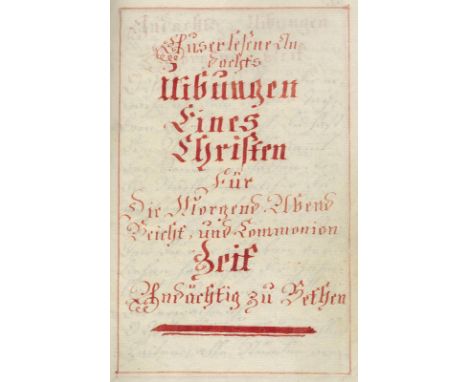 Auserlesene An
dachts
Uibungen
Eines
Christen
Für
Die Morgend. Abend
Beicht, und Commonion
Zeit
Andächtig zu Bethen